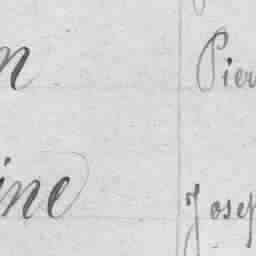 n Pier
ine Josep